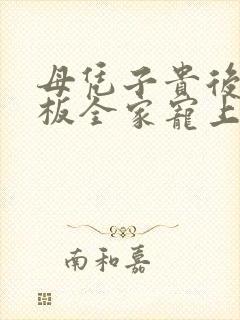 母凭子貴後
板全家寵上
南和嘉